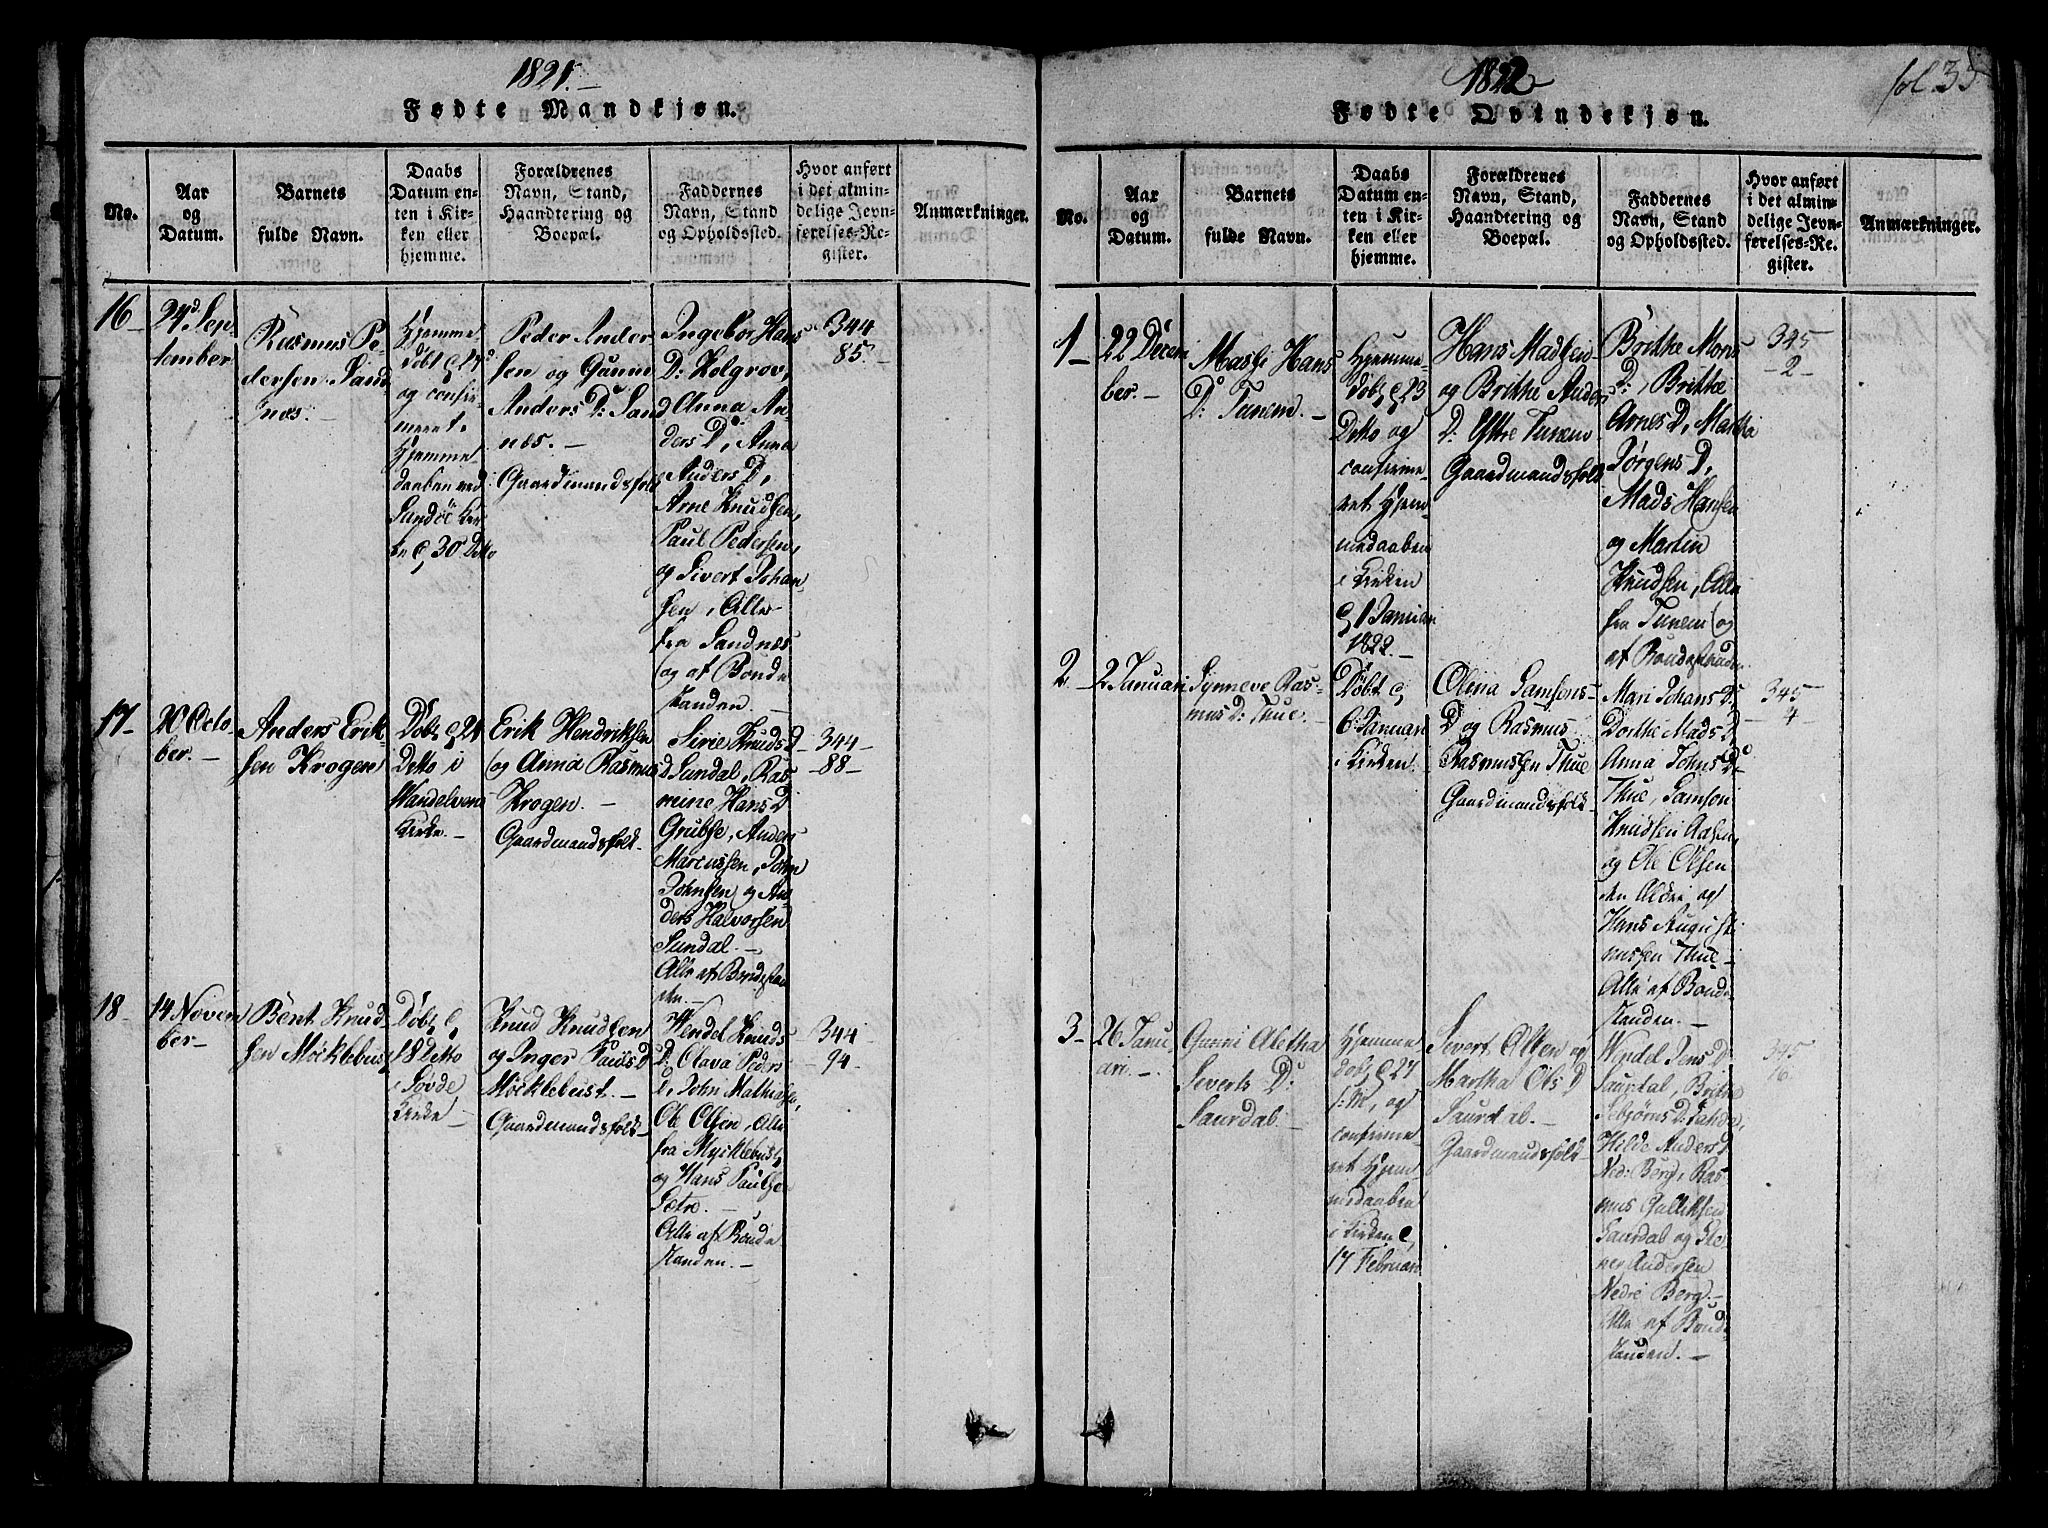 1821.
Fødte Mandkjøn.
No.
Aar
og
Datum.
Barnets
fulde Navn.
Daabs
Datum en-
ten i Kir-
ken eller
hjemme.
Forældrenes
Navn, Stand,
Haandtering og
Boepæl.
Faddernes
Navn, Stand
og Opholdssted.
Hvor anført
i det almin-
delige Jevn-
førelses-Re-
gister.
Anmærkninger.
16
Sep-
tember
Rasmus Pe-
dersen Sand
næs.
Hjemme
døbt
og confir-
meret
Hjemme
daaben ved
Sandøe Kir
ke d 30 Ditto
Peder Ander
sen og Gunni
Anders D: Sand
næs. -
Gaardmandsfolk
Ingebor Hans
D: Holgrov,
Anna An-
ders D, Anna
Anders D,
Arne Knudsen,
Paul Pedersen,
og Sivert Johan
sen, Alle
fra Sandnæs
og af Bonde
standen. -
344
85.
17
20 Octo-
ber. -
Anders Erik-
sen Krogen
Døbt d 24
Ditto i
Wandelvens
Kirke. -
Erik Hendriksen
og Anna Rasmus
Krogen. -
Gaardmandsfolk.
Sirie Knuds D
Sundal, Ras
mine Hans D
Grubse, Anders
Marcussen, John
Johnsen og An-
ders Halvorsen
Sundal. -
Alle af Bondestan
den. -
344
88
18
14 Novem
ber -
Bent Knud
sen Möcklebust
Døbt d
18 Ditto
i Søvde
Kirke -
Knud Knudsen
og Inger Pauls D
Möcklebust. -
Gaardmandsfolk
Wendel Knuds
D: Olava Peders
D, John Mathiassen,
Ole Olsen, Alle
fra Myklebust
og Hans Paulsen
Sætre. -
Alle af Bonde
standen. -
344
94
1822
fol. 35
Fødte Qvindekjøn.
No.
Aar
og
Datum.
Barnets
fulde Navn.
Daabs
Datum en-
ten i Kir-
ken eller
hjemme.
Forældrenes
Navn, Stand,
Haandtering og
Boepæl.
Faddernes
Navn, Stand
og Opholdssted.
Hvor anført
i det almin-
delige Jevn-
førelses-Re-
gister.
Anmærkninger.
1
22 Decem
ber. -
Massi Hans
D: Tunem. -
Hjemme
døbt d 23
Ditto og
confirme
ret Hjem-
medaaben
i Kirken
d 1 Januari
1822. -
Hans Madsen
og Brithe Anders
D: Ystre Tunem
Gaardmandsfolk
Brithe Mons
D:, Brithe
Arnes D, Martha
Jørgens D,
Mads Hansen
og Martin
Knudsen, Alle
fra Tunem og
af Bondestanden
345
- 2 -
2
2 Januari
Synneve Ras-
mus D: Thue. -
Døbt d
6 Januari
i Kirken
Olina Samsons
D og Rasmus
Rasmussen Thue
Gaardmandsfolk
Mari Johans D:
Dorthe Mads D
Anna Johns D
Thue, Samson
Knudsen Aasen,
og Ole Olsen
den Aldre og
Hans Augusti
nussen Thue
Alle af Bonde
standen. -
345
4
3
26 Janu
ari. -
Gunni Aletha
Siverts D:
Saurdal -
Hjemme
døbt d 27
s: M, og
confirme
ret Hjem
medaaben
i Kirken d
17 Februari
Sivert Olsen og
Martha Ols D
Saurdal. -
Gaardmandsfolk
Wendel Jens D:
Saurdal, Brithe
Hilde Anders D
Ned: Berg, Ras-
mus Gulliksen
Saurdal og Ste-
ner Andersen
Nedre Berg. -
Alle af Bonde
standen. -
345
16.